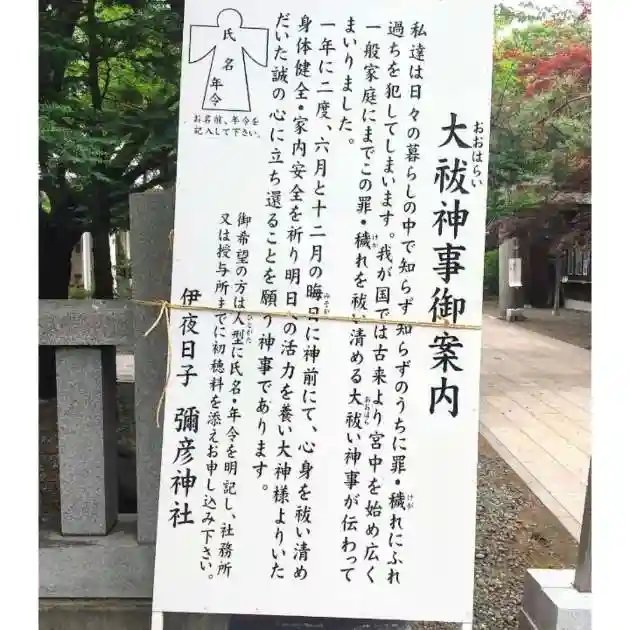 大祓神事御案内
おおはらい
私達は日々の暮らしの中で知らず知らずのうちに罪・穢れにふれ
けが
過ちを犯してしまいます。我が国では古来より宮中を始め広く
一般家庭にまでこの罪・穢れを祓い清める大祓い神事が伝わって
けが
おおはら
まいりました。
一年に二度、六月と十二月の晦日に神前にて、心身を祓い清め
みそか
身体健全・家内安全を祈り明日への活力を養い大神様よりいた
だいた誠の心に立ち還ることを願う神事であります。
御希望の方は人型に氏名・年令を明記し、社務所
ひとがた
又は授与所までに初穂料を添えお申し込み下さい。
伊夜日子 彌彦神社
氏名
年令
お名前、年令を
記入して下さい。